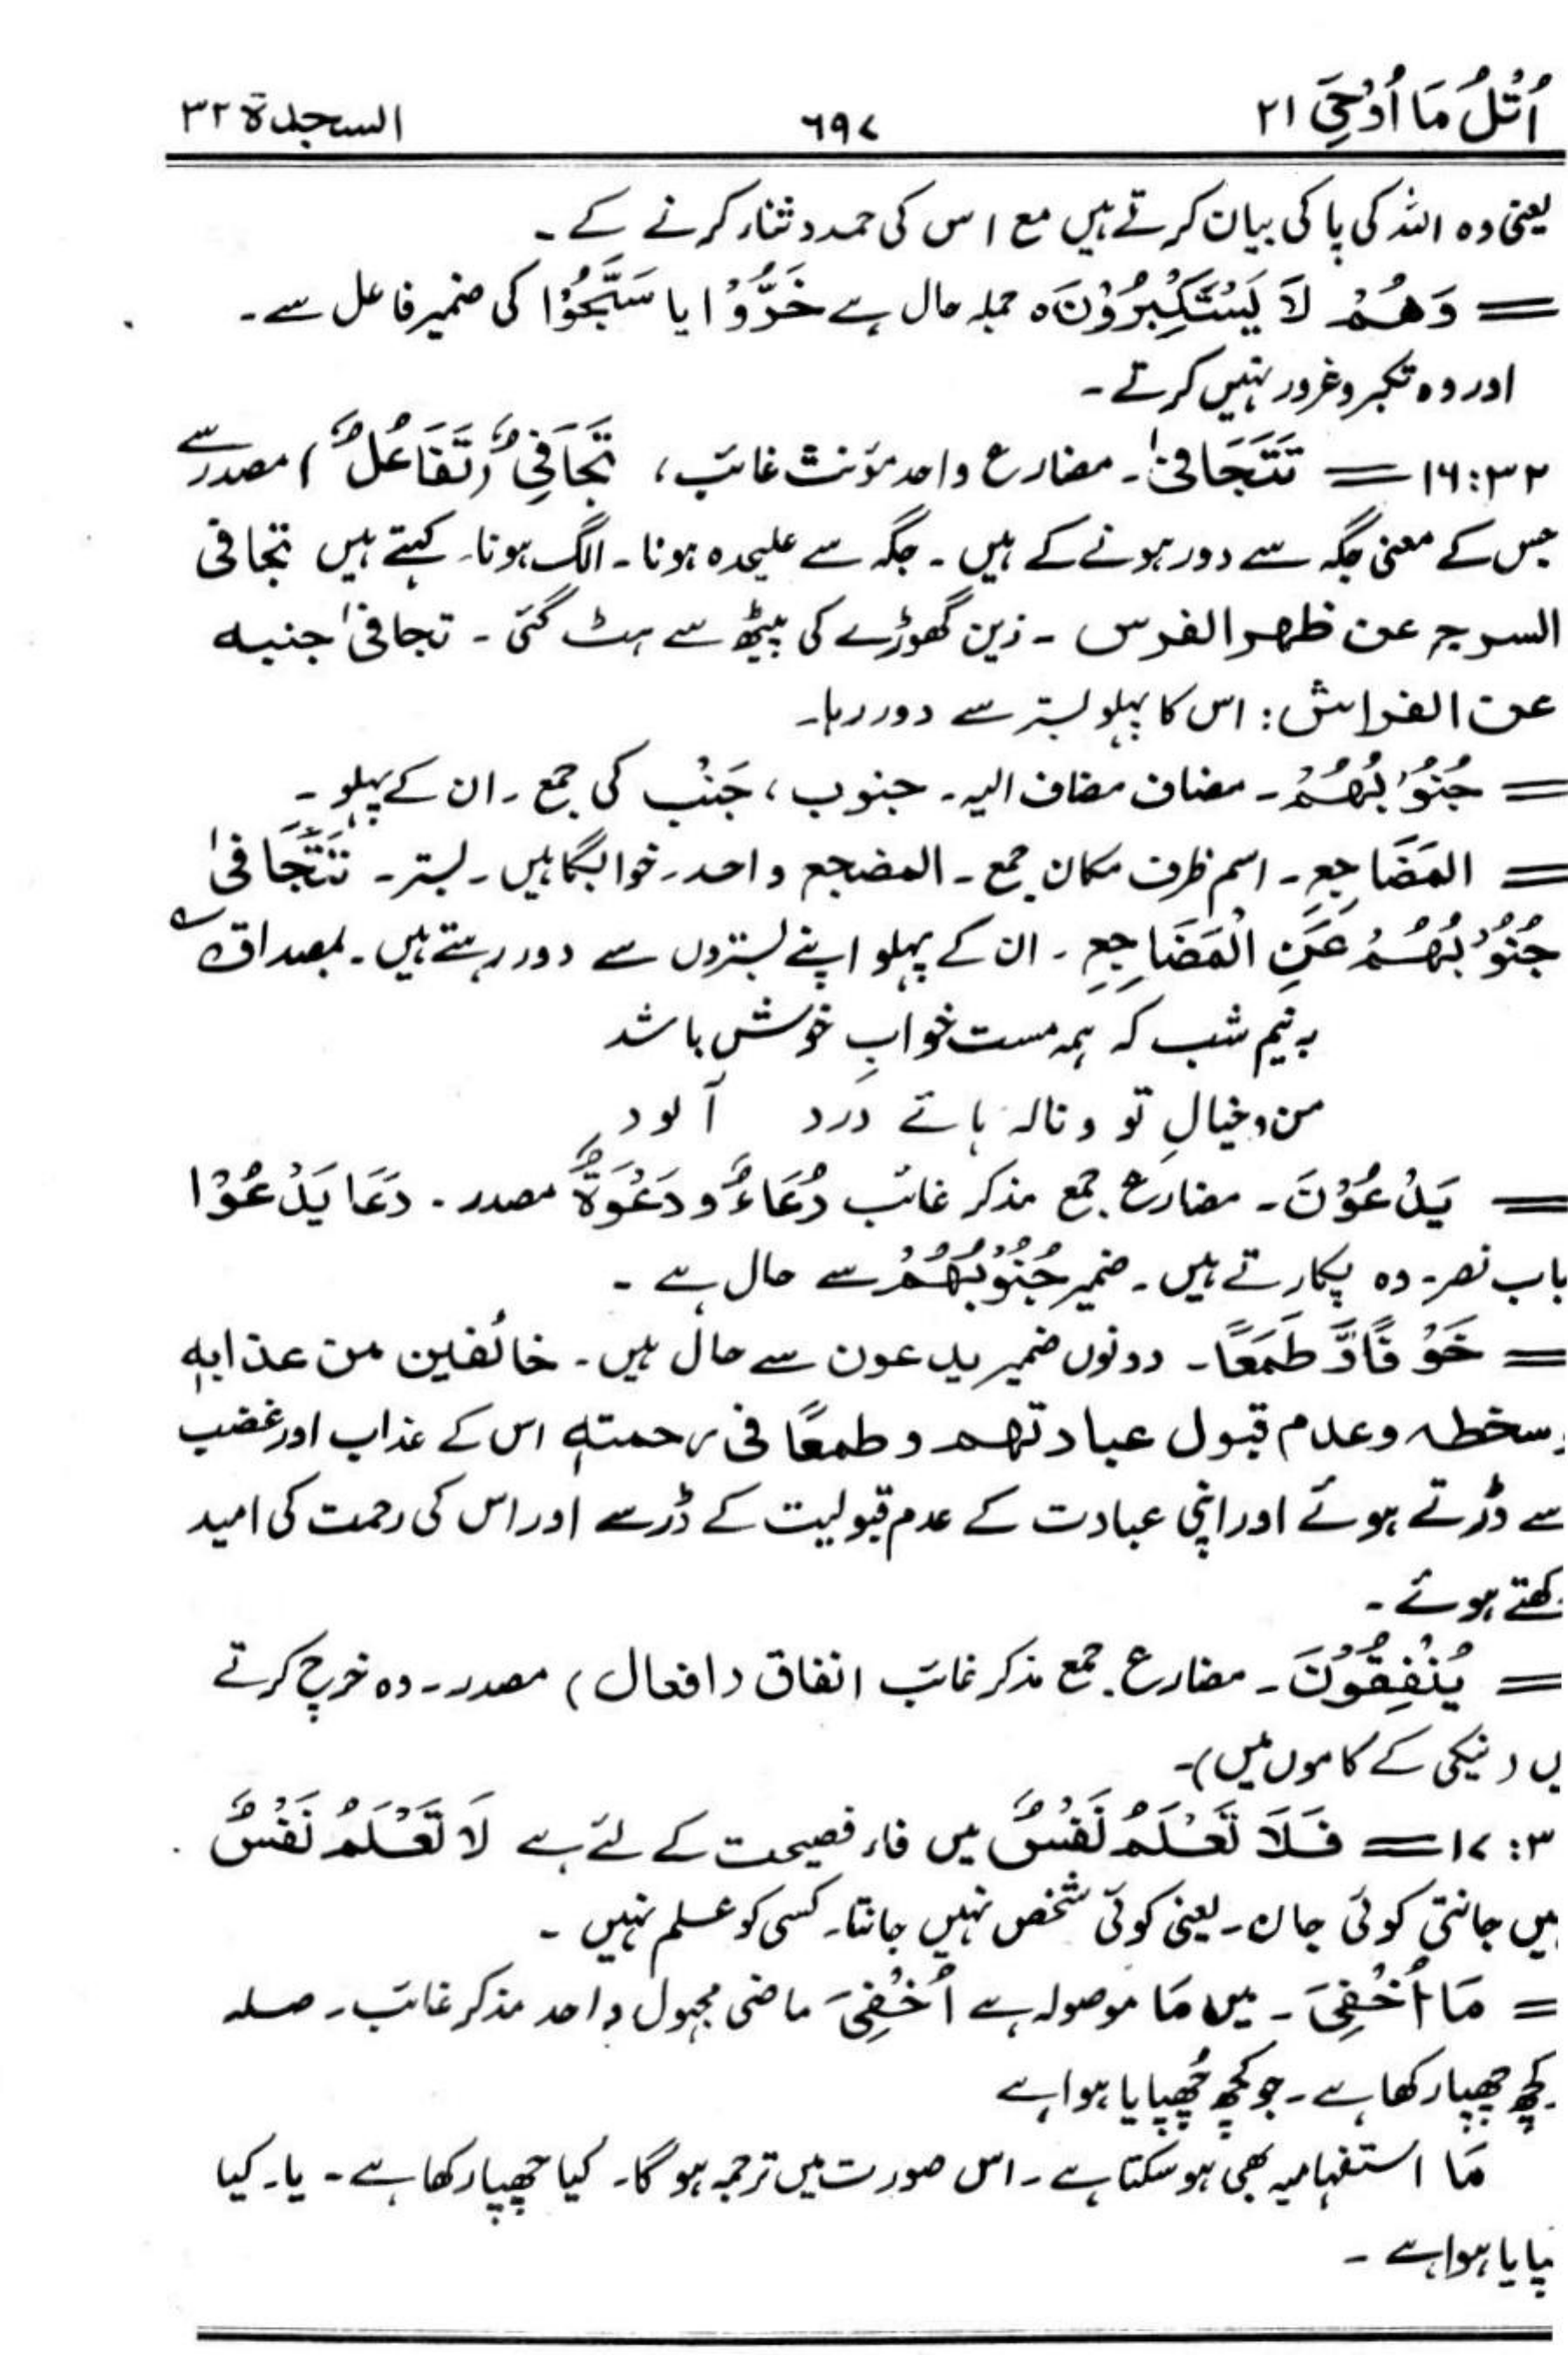 اُتْلُ مَا اُوْحِیَ ۲۱ ۶۹۷ السجدۃ ۳۲
یعنی وہ اللہ کی پاکی بیان کرتے ہیں مع اس کی حمد و ثناء کرنے کے ۔
= وَھُمْ لَا یَسْتَکْبِرُوْنَ ہ جملہ حال ہے خَرُّوْا یا سَبَّحُوْا کی ضمیر فاعل سے ۔
اور وہ تکبر و غرور نہیں کرتے ۔
۳۲:۱۶ = تَتَجَافٰی ۔ مضارع واحد مؤنث غائب ، تَجَافِیٌ (تَفَاعُلٌ) مصدر سے
جس کے معنی جگہ سے دور ہونے کے ہیں ۔ جگہ سے علیحدہ ہونا ۔ الگ ہونا ۔ کہتے ہیں تجافی
السرج عن ظھر الفرس ۔ زین گھوڑے کی پیٹھ سے ہٹ گئی ۔ تجافیٰ جنبہ
عن الفراش : اس کا پہلو بستر سے دور رہا ۔
= جُنُوْبُھُمْ ۔ مضاف مضاف الیہ ۔ جنوب ، جَنْبٌ کی جمع ۔ ان کے پہلو ۔
= المَضَاجِعِ ۔ اسم ظرف مکان جمع ۔ المضجع واحد ۔ خوابگاہیں ۔ بستر ۔ تَتَجَافٰی
جُنُوْبُھُمْ عَنِ الْمَضَاجِعِ ۔ ان کے پہلو اپنے بستروں سے دور رہتے ہیں ۔ بمصداق
بہ نیم شب کہ ہمہ مست خوابِ خوش باشد
من و خیالِ تو و نالہ ہائے درد آلود
= یَدْعُوْنَ ۔ مضارع جمع مذکر غائب دُعَاءٌ و دَعْوَۃٌ مصدر ۔ دَعَا یَدْعُوْا
باب نصر ۔ وہ پکارتے ہیں ۔ ضمیر جُنُوْبُھُمْ سے حال ہے ۔
= خَوْفًا وَّ طَمَعًا ۔ دونوں ضمیر یدعون سے حال ہیں ۔ خائفین من عذابہٖ
وسخطہ وعدم قبول عبادتھم و طمعًا فی رحمتہٖ اس کے عذاب اور غضب
سے ڈرتے ہوئے اور اپنی عبادت کے عدم قبولیت کے ڈر سے اور اس کی رحمت کی امید
رکھتے ہوئے ۔
= یُنْفِقُوْنَ ۔ مضارع جمع مذکر غائب انفاق (افعال) مصدر ۔ وہ خرچ کرتے
یں (نیکی کے کاموں میں) ۔
۳:۱۷ = فَلَا تَعْلَمُ نَفْسٌ میں فاء فصیحت کے لئے ہے لَا تَعْلَمُ نَفْسٌ
ہیں جانتی کوئی جان ۔ یعنی کوئی شخص نہیں جانتا ۔ کسی کو علم نہیں ۔
= مَا اُخْفِیَ ۔ میں مَا موصولہ ہے اُخْفِیَ ماضی مجہول واحد مذکر غائب ۔ صلہ
کچھ چھپا رکھا ہے ۔ جو کچھ چُھپایا ہوا ہے
مَا استفہامیہ بھی ہو سکتا ہے ۔ اس صورت میں ترجمہ ہوگا ۔ کیا چھپا رکھا ہے ۔ یا ۔ کیا
پایا ہوا ہے ۔